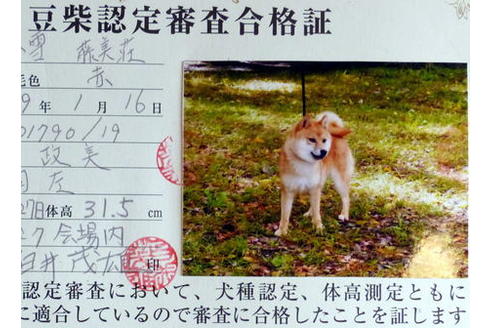 豆柴認定審査合格証
雪 森美荘
毛色 赤
9年 1月 16日
01790/19
政美
左
27日体高 31.5 cm
27 会場内
臼井 茂雄 印
認定審査において、犬種認定、体高測定ともに
に適合しているので審査に合格したことを証します